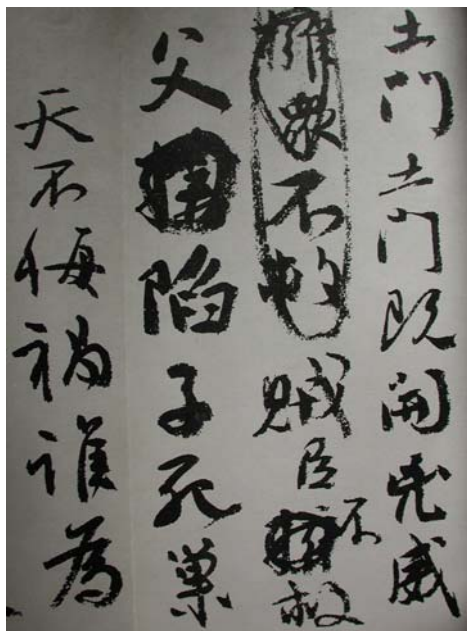 土門土門既開兇威
擁衆不救賊臣不救
父陷子死巢
天不悔禍誰為